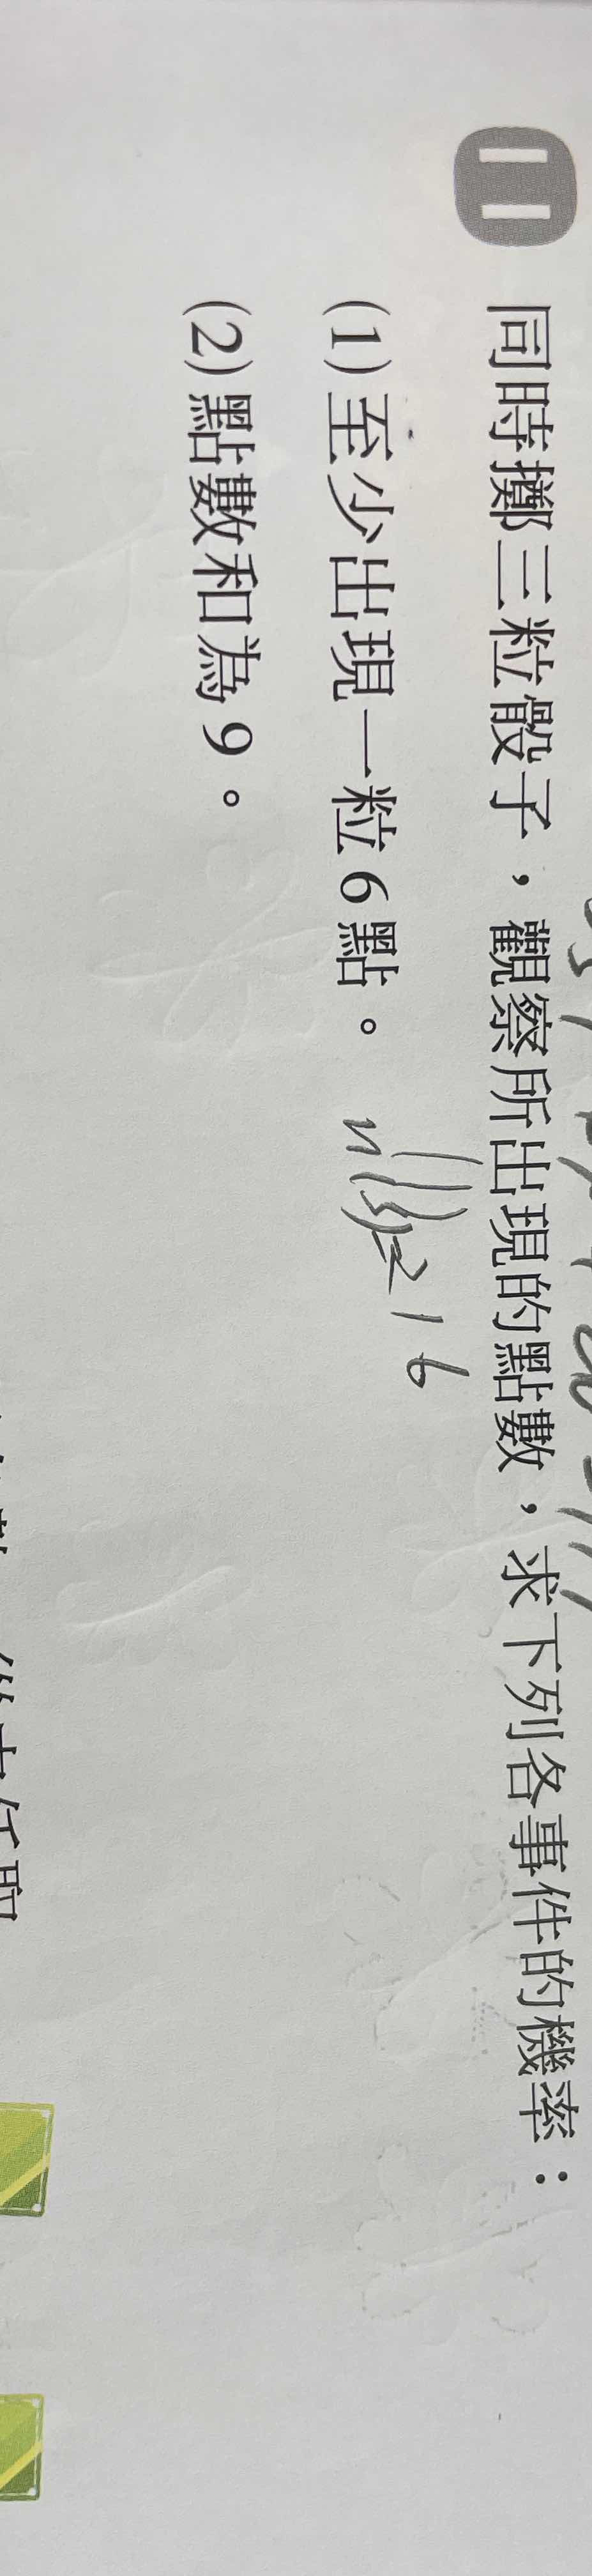 11 同時擲三粒骰子，觀察所出現的點數，求下列各事件的機率：
(1) 至少出現一粒6點。 n(S)=16
(2) 點數和為9。